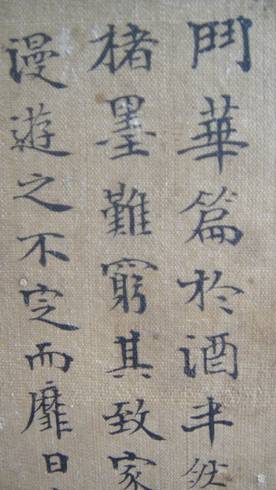 鬥華篇於酒半然
楮墨難窮其致家
漫遊之不定而靡日